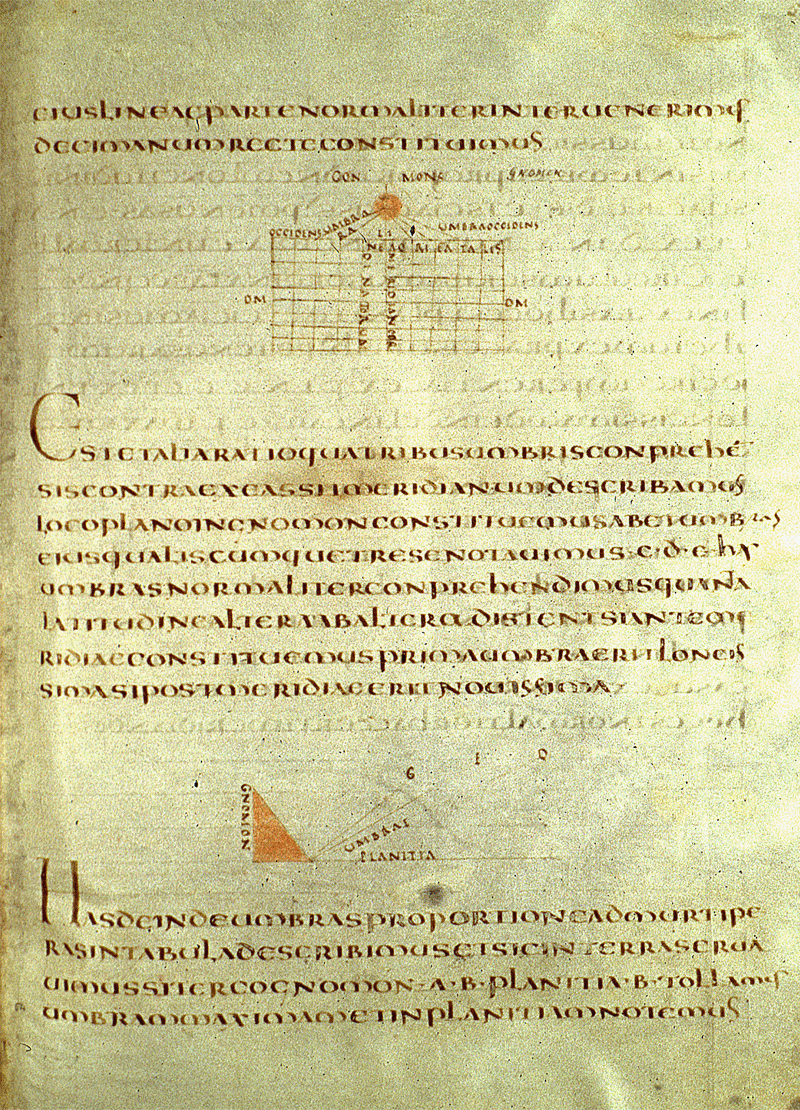 EIUS LINEAE PARTE NORMALITER INTERUENERIMUS
DECIMANUM RECTE CONSTITUIMUS
CON MONS GNOMON
OCCIDENS UMBRA UMBRA OCCIDENS
DM DM
EST ET ALIA RATIO QUA TRIBUS UMBRIS CONPREHĒ
SIS CONTRA EXCASSI MERIDIANUM DESCRIBAMUS
LOCO PLANO INGNOMON CONSTITUEMUS AB ET UMBRAS
EIUS QUALISCUMQUE TRES ENOTAUIMUS C·D·E HAS
UMBRAS NORMALITER CONPREHENDIMUS QUANTA
LATITUDINE ALTERA AB ALTERA DISTENT SI ANTE ME
RIDIAE CONSTITUEMUS PRIMA UMBRA ERIT LONGIS
SIMA SI POST MERIDIAE ERIT NOUISSIMA
GNOMON
UMBRAE
PLANITIA
HAS DEINDE UMBRAS PROPORTIONE AD MURTIPE
RAS IN TABULA DESCRIBIMUS ET SIC IN TERRA SERUA
UIMUS SIT ERCO GNOMON·A·B·PLANITIA·B·TOLLAMUS
UMBRAM MAXIMAM ET IN PLANITIAM NOTEMUS